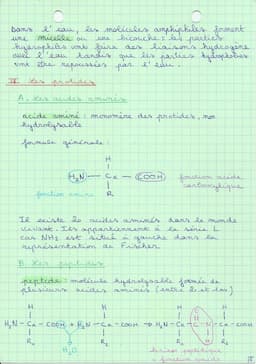 Dans l'eau, les molécules amphiphiles forment
une micelle ou une bicouche : les parties
hydrophiles vont faire des liaisons hydrogène
avec l'eau tandis que les parties hydrophobes
vont être repoussées par l'eau.
III Les protides
A. Les acides aminés
acide aminé : monomère des protides, non
hydrolysable
formule générale :
H
H₂N — Cα — COOH
R
fonction amine
fonction acide
carboxylique
Il existe 20 acides aminés dans le monde
vivant. Ils appartiennent à la série L
car NH₂ est situé à gauche dans la
représentation de Fischer.
B. Les peptides
peptide : molécule hydrolysable formée de
plusieurs acides aminés (entre 2 et 100)
H H H H
H₂N — Cα — COOH + H₂N — Cα — COOH → H₂N — Cα — C — N — Cα — COOH
R₁ R₂ R₁ O H R₂
H₂O
liaison peptidique
= fonction amide